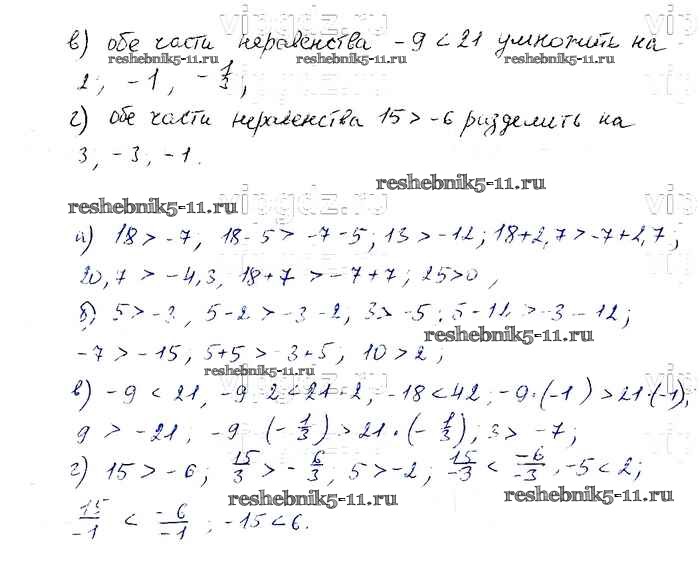 в) обе части неравенства -9 < 21 умножить на
reshebnik5-11.ru reshebnik5-11.ru
2; -1, -1/3;
г) обе части неравенства 15 > -6 разделить на
3, -3, -1.
reshebnik5-11.ru
reshebnik5-11.ru
а) 18 > -7; 18-5 > -7-5; 13 > -12; 18+2,7 > -7+2,7;
20,7 > -4,3, 18+7 > -7+7; 25>0,
б) 5 > -3, 5-2 > -3-2, 3 > -5; 5-12 > -3-12;
reshebnik5-11.ru
-7 > -15, 5+5 > -3+5, 10 > 2;
reshebnik5-11.ru
в) -9 < 21, -9·2 < 21·2, -18 < 42, -9·(-1) > 21·(-1),
9 > -21; -9·(-1/3) > 21·(-1/3), 3 > -7;
г) 15 > -6; 15/3 > -6/3, 5 > -2; 15/-3 < -6/-3, -5 < 2;
reshebnik5-11.ru reshebnik5-11.ru
15/-1 < -6/-1; -15 < 6.